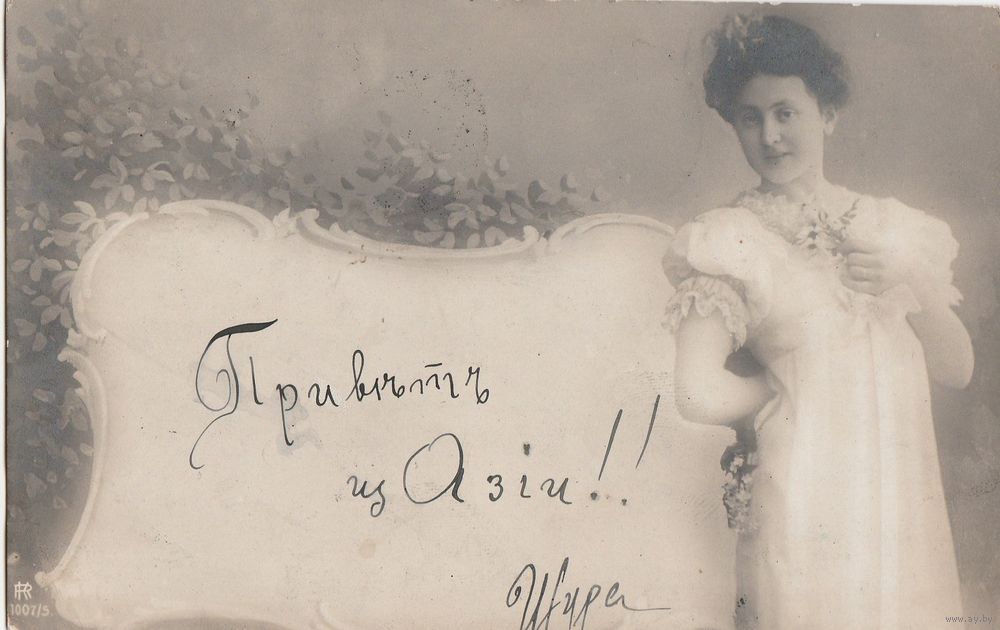 Привѣтъ
изъ Азіи!!
Шура
1007/5
www.ay.by